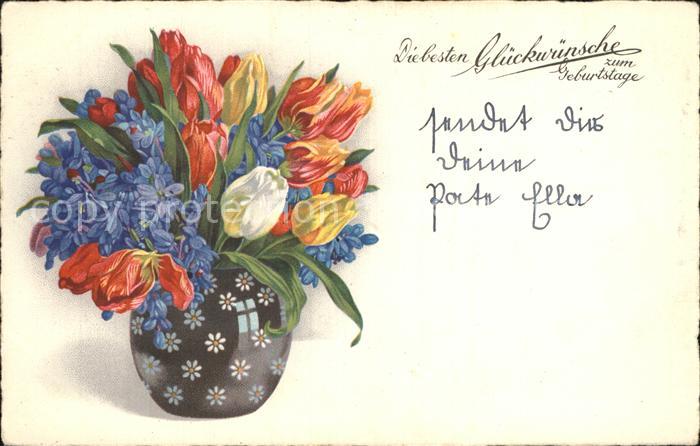 Die besten Glückwünsche
zum
Geburtstage
sendet dir
deine
Pate Ella
copy protection